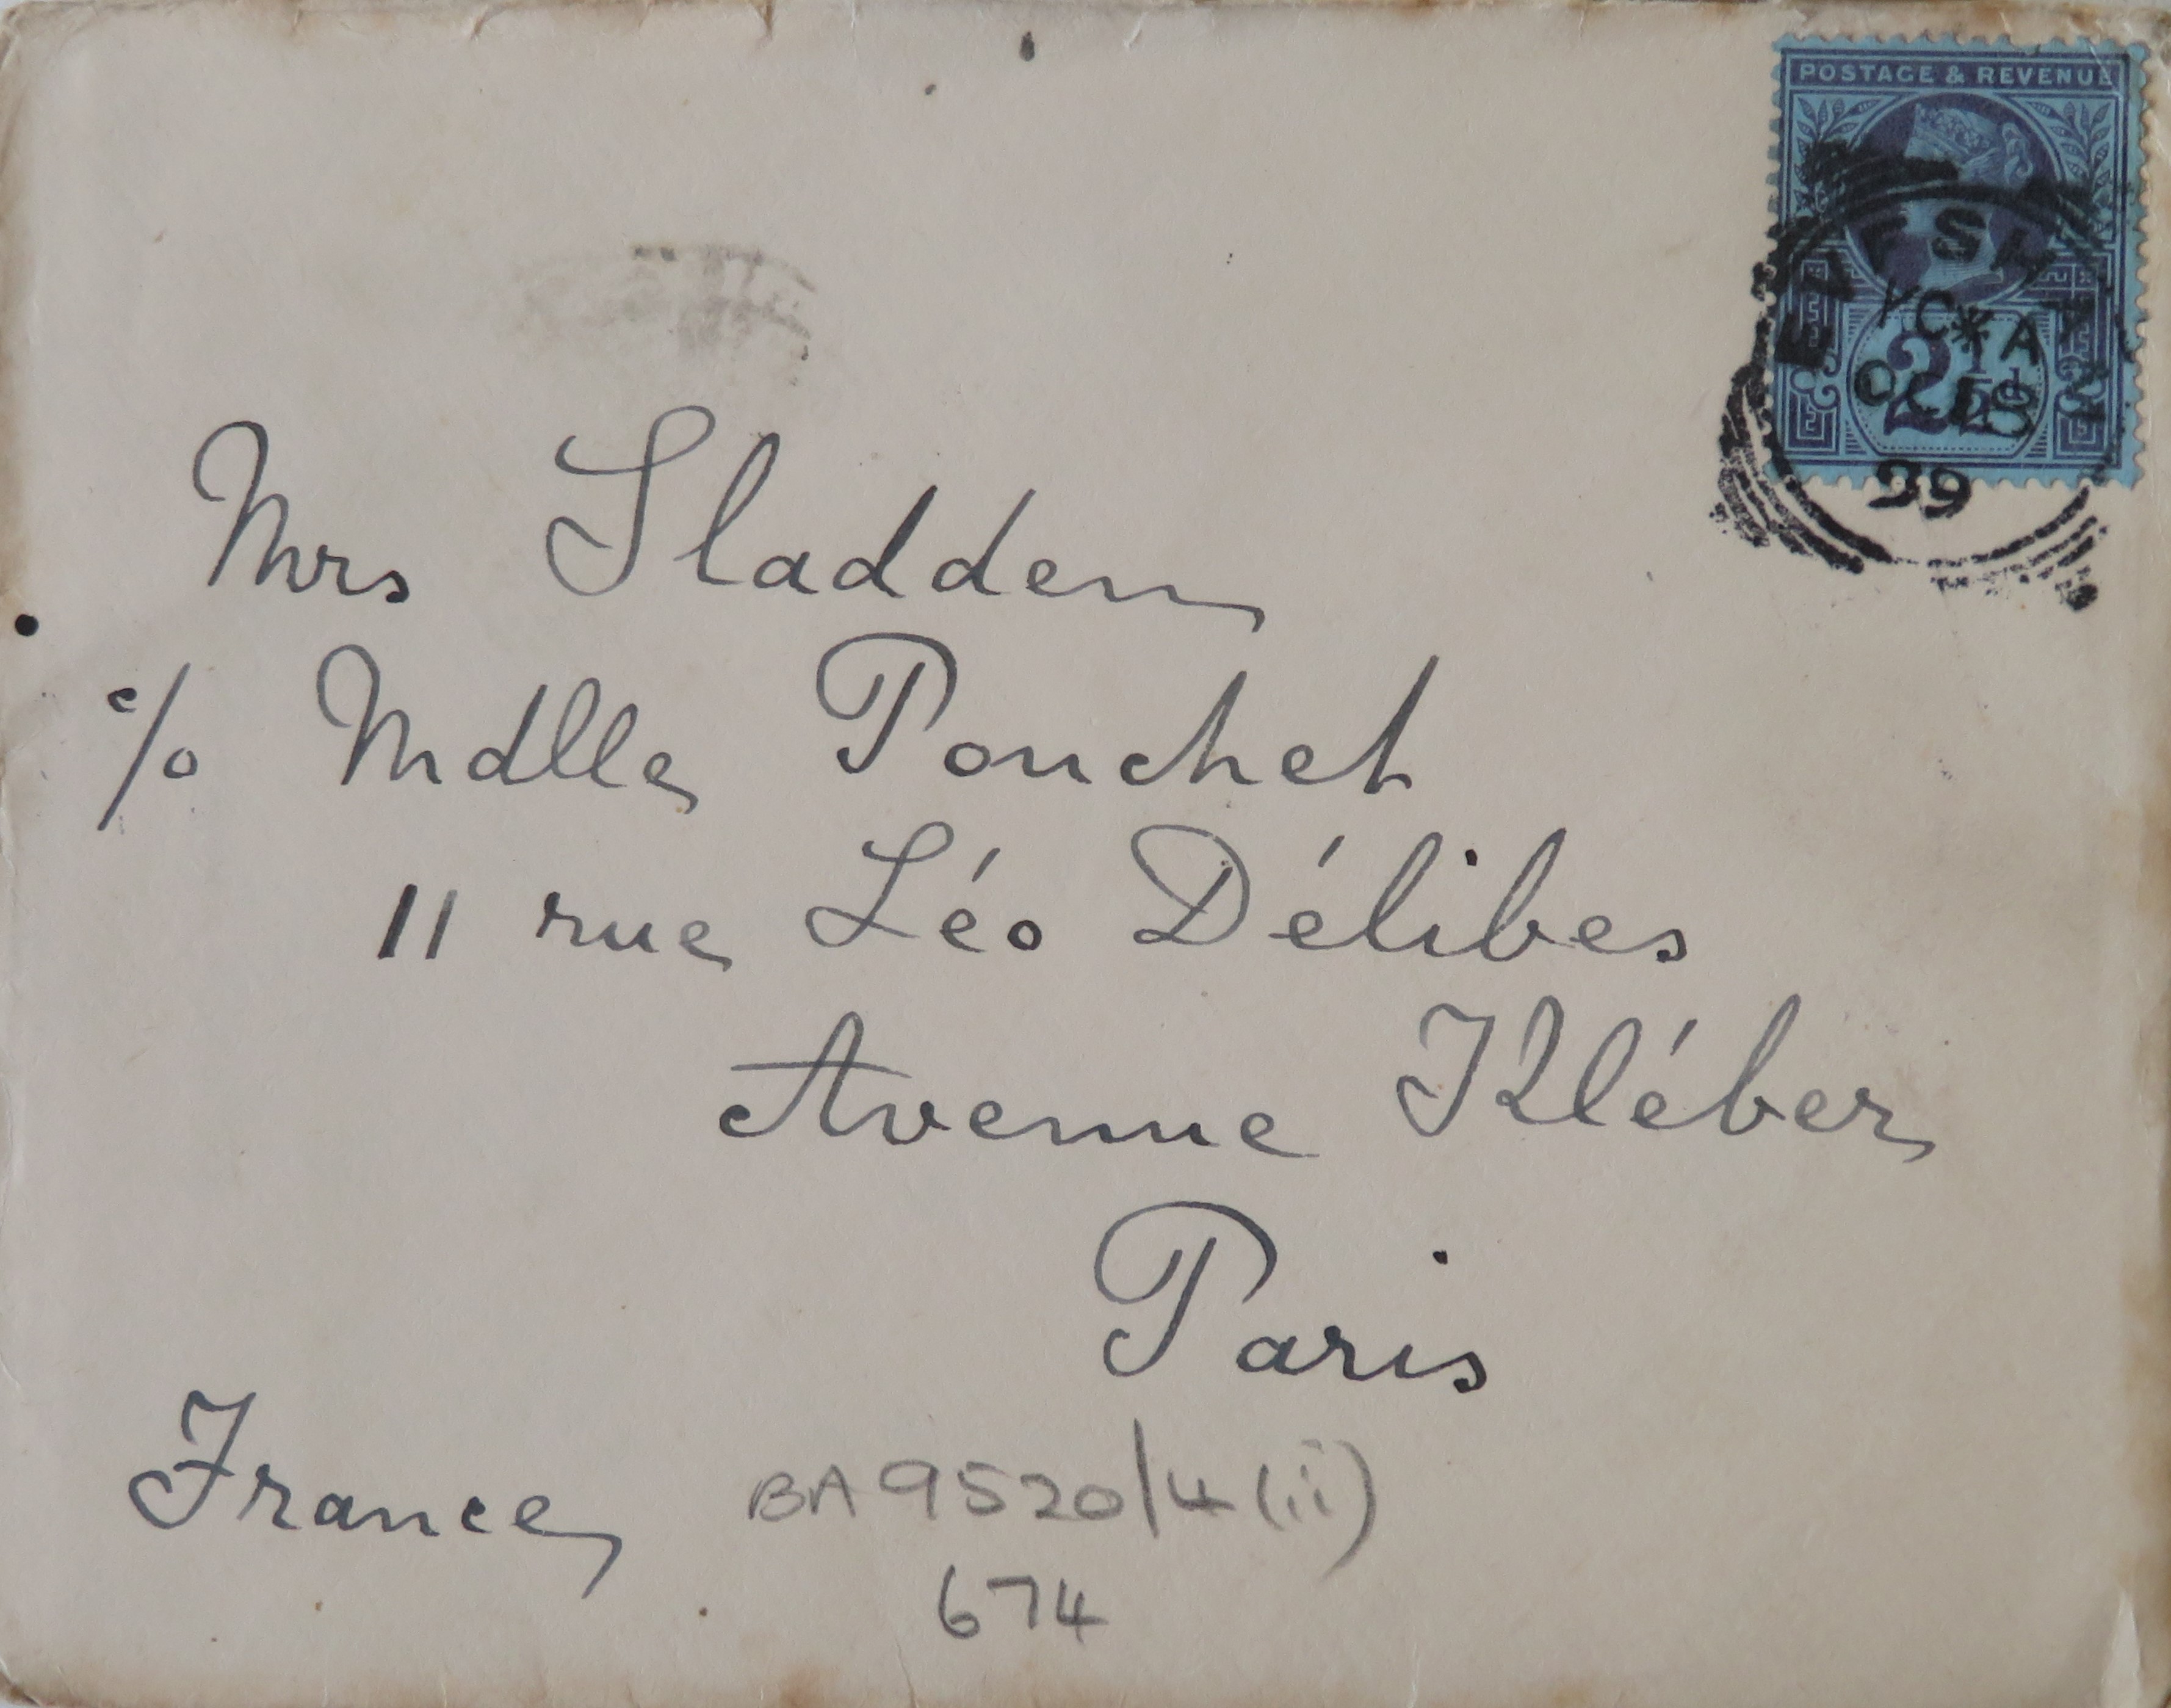 POSTAGE & REVENUE
EVESHAM
YC*A
OC
99
Mrs Sladden
c/o Mdlle Pouchet
11 rue Léo Délibes
Avenue Kléber
Paris
France
BA 9520/4 (ii)
674